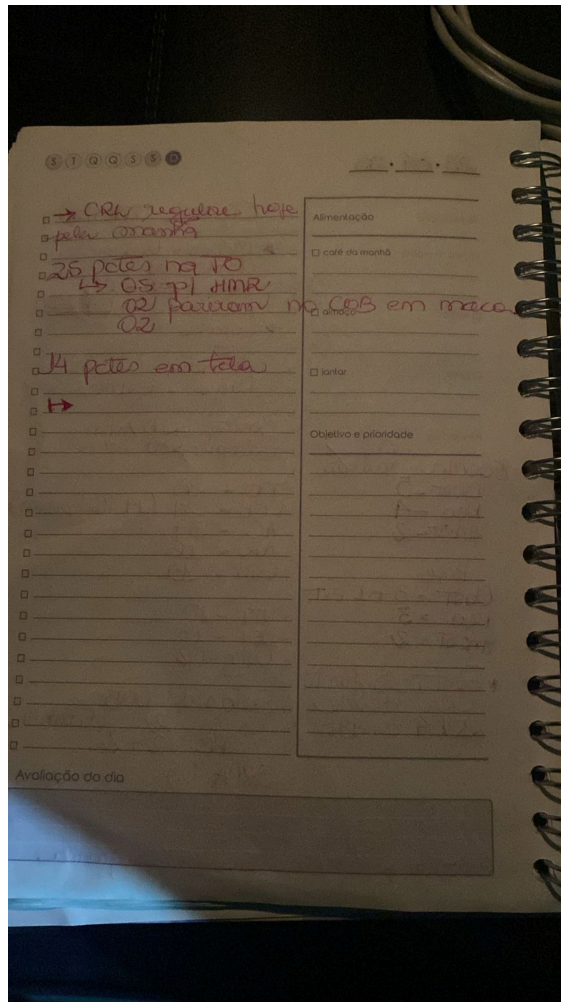 S T Q Q S S D
→ CRH regulou hoje
pela manhã
25 pctes na PO
↳ 05 p/ HMR
02 pariram no COB em maca
02
14 pctes em tela
↦
Alimentação
café da manhã
almoço
jantar
Objetivo e prioridade
Avaliação do dia